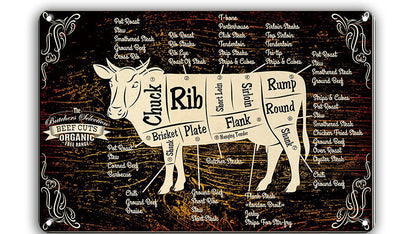 Pot Roast
Stew
Smothered Steak
Ground Beef
Cross Rib
Rib Roast
Rib Steaks
Rib Eye
Roast Of Steak
T-bone
Porterhouse
Club Steak
Tenderloin
Strips & Cubes
Sirloin Steaks
Top Sirloin
Tenderloin
Tri-tip
Strips & Cubes
Pot Roast
Stew
Smothered Steak
Ground Beef
Chuck
Rib
Short Loin
Sirloin
Rump
Round
Brisket
Plate
Flank
Hanging Tender
Shank
Shank
The
Butchers Selection
BEEF CUTS
ORGANIC
FREE RANGE
Strips & Cubes
Pot Roast
Stew
Smothered Steak
Chicken Fried Steak
Ground Beef
Oven Roast
Oyster Steak
Pot Roast
Stew
Corned Beef
Barbecue
Butcher Steaks
Chili
Ground Beef
Braise
Ground Beef
Short Ribs
Stew
Skirt Steak
Flank Steak
London Broil
Jerky
Strips For Stir-fry
Chili
Ground Beef